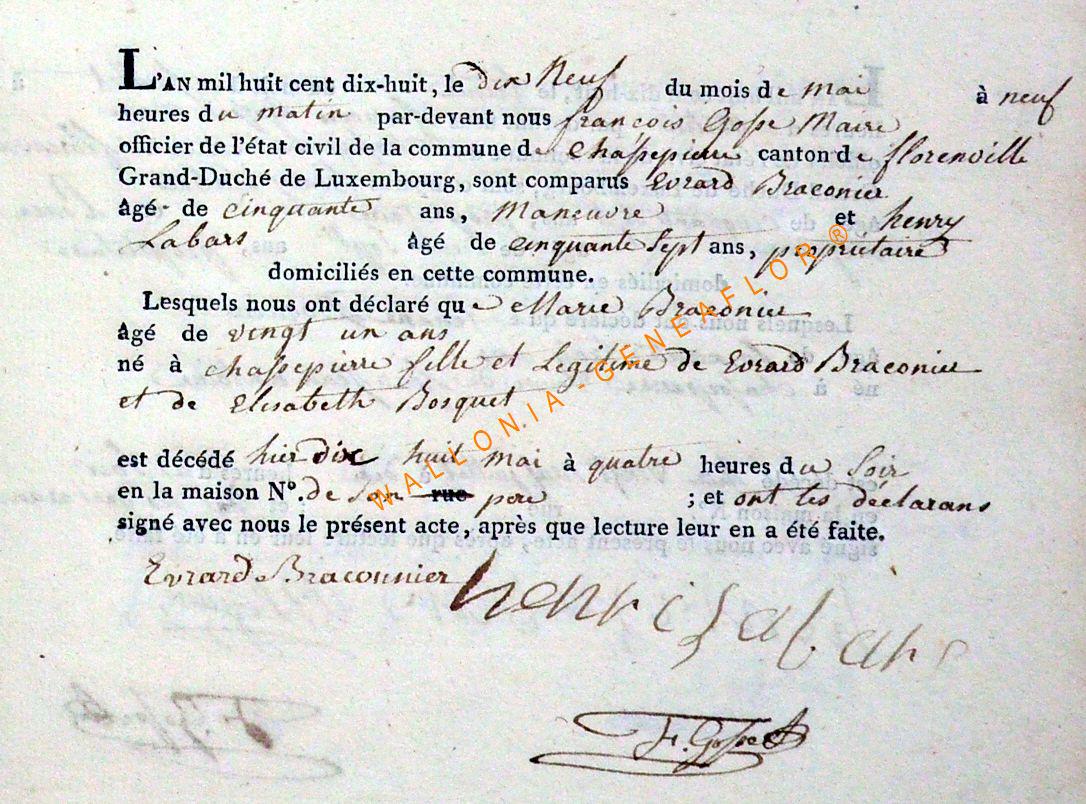 L'AN mil huit cent dix-huit, le dix Neuf du mois de mai à neuf
heures du matin par-devant nous francois Gosse Maire
officier de l'état civil de la commune de Chassepierre canton de florenville
Grand-Duché de Luxembourg, sont comparus Evrard Braconier
âgé de cinquante ans, Maneuvre et henry
Labars âgé de cinquante sept ans, propriétaire
domiciliés en cette commune.
Lesquels nous ont déclaré que Marie Braconier
âgé de vingt un ans
né à chassepierre fille et Legitime de Evrard Braconier
et de Elisabeth Bosquet
est décédé hier dix huit mai à quatre heures du Soir
en la maison N°. de son rue pere ; et ont les déclarans
signé avec nous le présent acte, après que lecture leur en a été faite.
Evrard Braconnier henri Labars
F. Gosse
WALLON.IA - GENEAFLOR ®